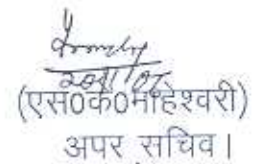 (एस0के0माहेश्वरी)
अपर सचिव।